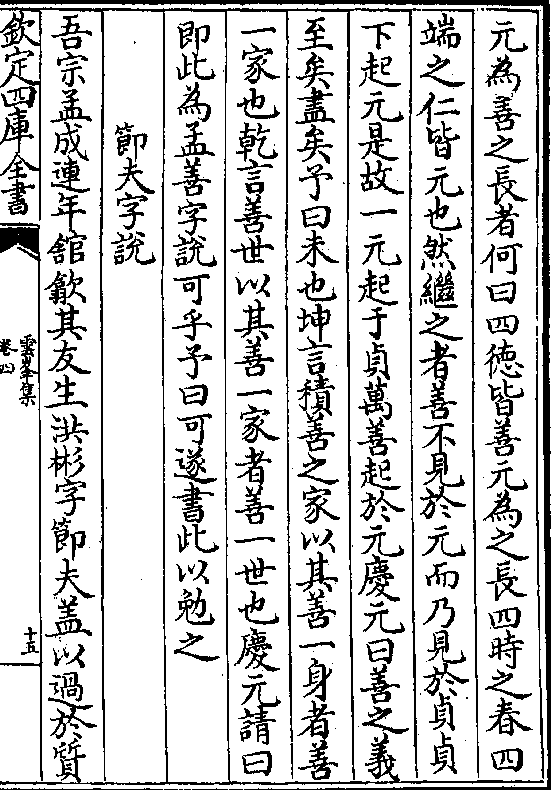 元為善之長者何曰四徳皆善元為之長四時之春四
端之仁皆元也然繼之者善不見於元而乃見於貞貞
下起元是故一元起于貞萬善起於元慶元曰善之義
至矣盡矣予曰未也坤言積善之家以其善一身者善
一家也乾言善世以其善一家者善一世也慶元請曰
即此為孟善字說可乎予曰可遂書此以勉之
節夫字說
吾宗孟成連年館歙其友生洪彬字節夫蓋以過於質
欽定四庫全書
雲峯集
卷四
十五